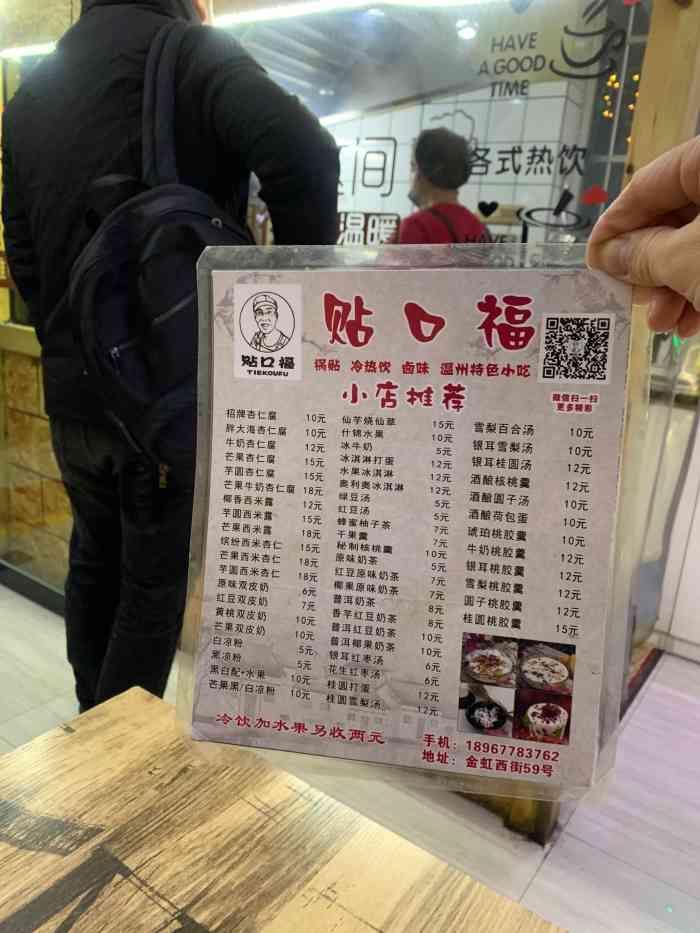 HAVE
A GOOD
TIME
间
各式热饮
温暖
HAVE
贴口福
TIEKOUFU
贴口福
锅贴 冷热饮 卤味 温州特色小吃
小店推荐
微信扫一扫
更多精彩
招牌杏仁腐 10元
胖大海杏仁腐 10元
牛奶杏仁腐 12元
芒果杏仁腐 15元
芋圆杏仁腐 15元
芒果牛奶杏仁腐 18元
椰香西米露 12元
芋圆西米露 15元
芒果西米露 18元
缤纷西米杏仁 15元
芒果西米杏仁 18元
芋圆西米杏仁 18元
原味双皮奶 6元
红豆双皮奶 7元
黄桃双皮奶 10元
芒果双皮奶 10元
白凉粉 5元
黑凉粉 5元
黑白配+水果 10元
芒果黑/白凉粉 10元
仙芋烧仙草 15元
什锦水果 10元
冰牛奶 5元
冰淇淋打蛋 12元
水果冰淇淋 12元
奥利奥冰淇淋 12元
绿豆汤 5元
红豆汤 5元
蜂蜜柚子茶 7元
干果羹 7元
秘制核桃羹 10元
原味奶茶 5元
红豆原味奶茶 7元
椰果原味奶茶 7元
普洱奶茶 8元
香芋红豆奶茶 8元
普洱红豆奶茶 10元
普洱椰果奶茶 10元
银耳红枣汤 6元
花生红枣汤 6元
桂圆打蛋 12元
桂圆雪梨汤 12元
雪梨百合汤 10元
银耳雪梨汤 10元
银耳桂圆汤 12元
酒酿核桃羹 12元
酒酿圆子汤 10元
酒酿荷包蛋 10元
琥珀桃胶羹 10元
牛奶桃胶羹 12元
银耳桃胶羹 12元
雪梨桃胶羹 12元
圆子桃胶羹 12元
桂圆桃胶羹 15元
冷饮加水果另收两元
手机：18967783762
地址：金虹西街59号